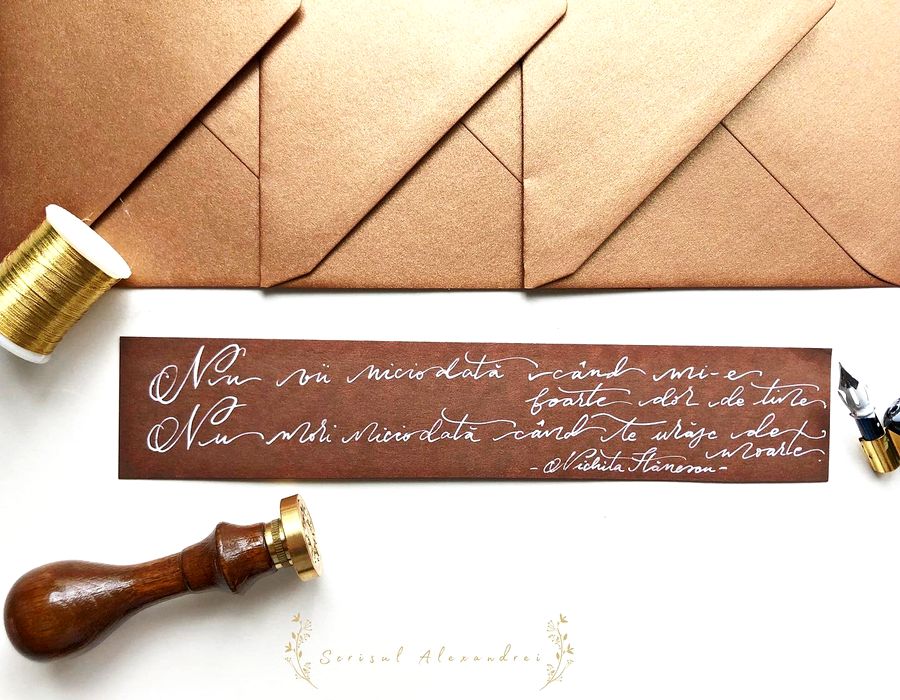 Nu vii niciodată când mi-e
foarte dor de tine
Nu mori niciodată când te urăsc de
moarte.
- Nichita Stănescu -
Scrisul Alexandrei